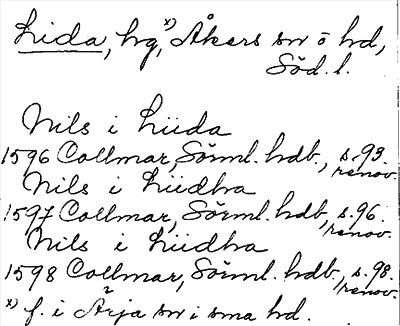 Lida, hg, x) Åkers sn ö hd,
Söd. l.
Nils i Liida
1596 Collmar, Sörml. hdb., s. 93.
renov.
Nils i Liidha
1597 Collmar, Sörml. hdb, s. 96.
renov.
Nils i Liidha
1598 Collmar, Sörml. hdb., s. 98.
renov.
x) f. i Ärja sn i sma hd.